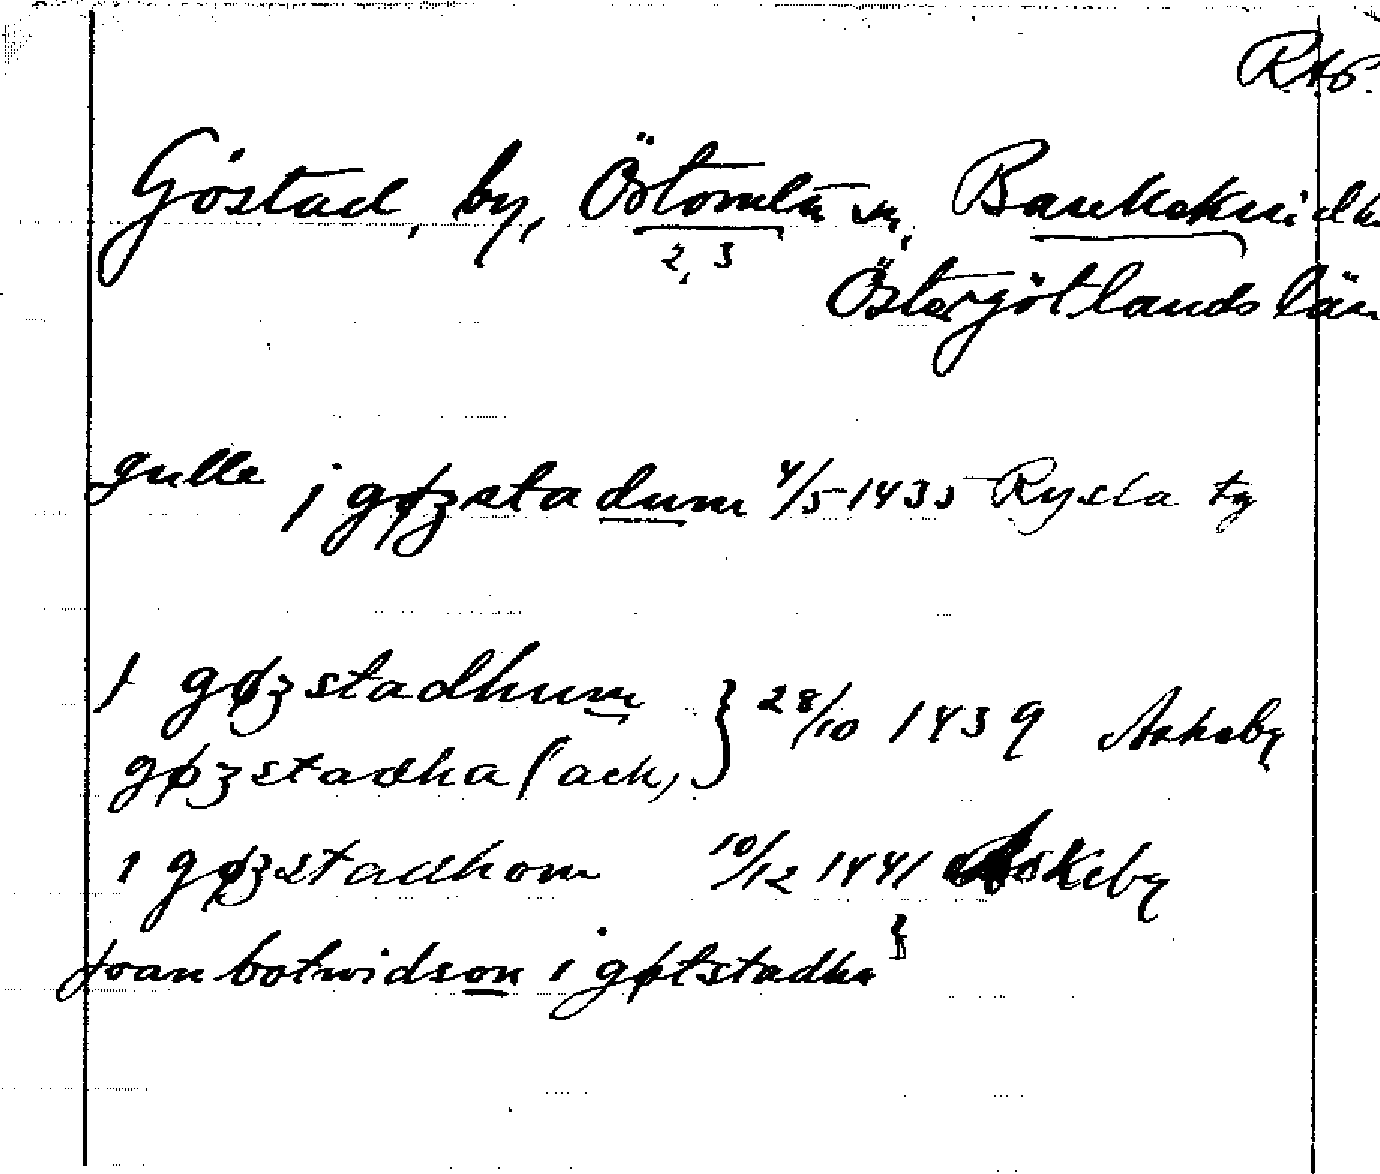 RAp.
Göstad, by, Östomlă sn, Bankekinds
2, 3
Östergötlands län
gulle j gøzstadum 4/5 1435 Rysta tg
j gøzstadhum } 28/10 1439 Askeby
gøzstadha (ack)
i gøzstadhom 10/12 1441 Askeby
joan botwidson i gøtstadha }